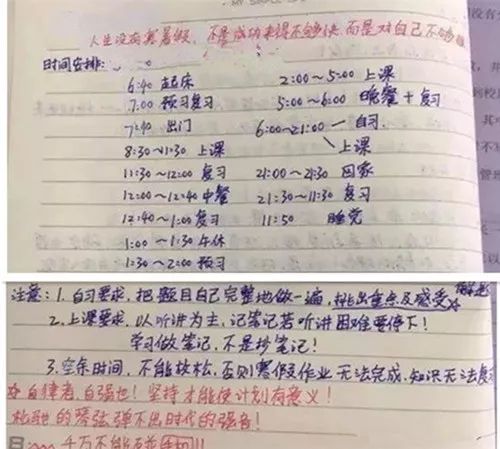 人生没有寒暑假,不是成功来得不够快,而是对自己不够狠
时间安排:
6:40 起床
7:00 预习复习
7:40 出门
8:30~11:30 上课
11:30~12:00 复习
12:00~12:40 中餐
12:40~1:00 复习
1:00~1:30 午休
1:30~2:00 预习
2:00~5:00 上课
5:00~6:00 晚餐+复习
6:00~21:00 一自习
上课
21:00~21:30 回家
21:30~11:30 复习
11:50 睡觉
注意:1.自习要求,把题目自己完整地做一遍,挑出重点及感受
2.上课要求,以听讲为主,记笔记若听讲困难要停下!
学习做笔记,不是抄笔记!
3.空余时间,不能放松,否则寒假作业无法完成,知识无法复
自律者,自强也!坚持才能使计划有意义!
松驰的琴弦弹不出时代的强音!
千万不能玩手机!!